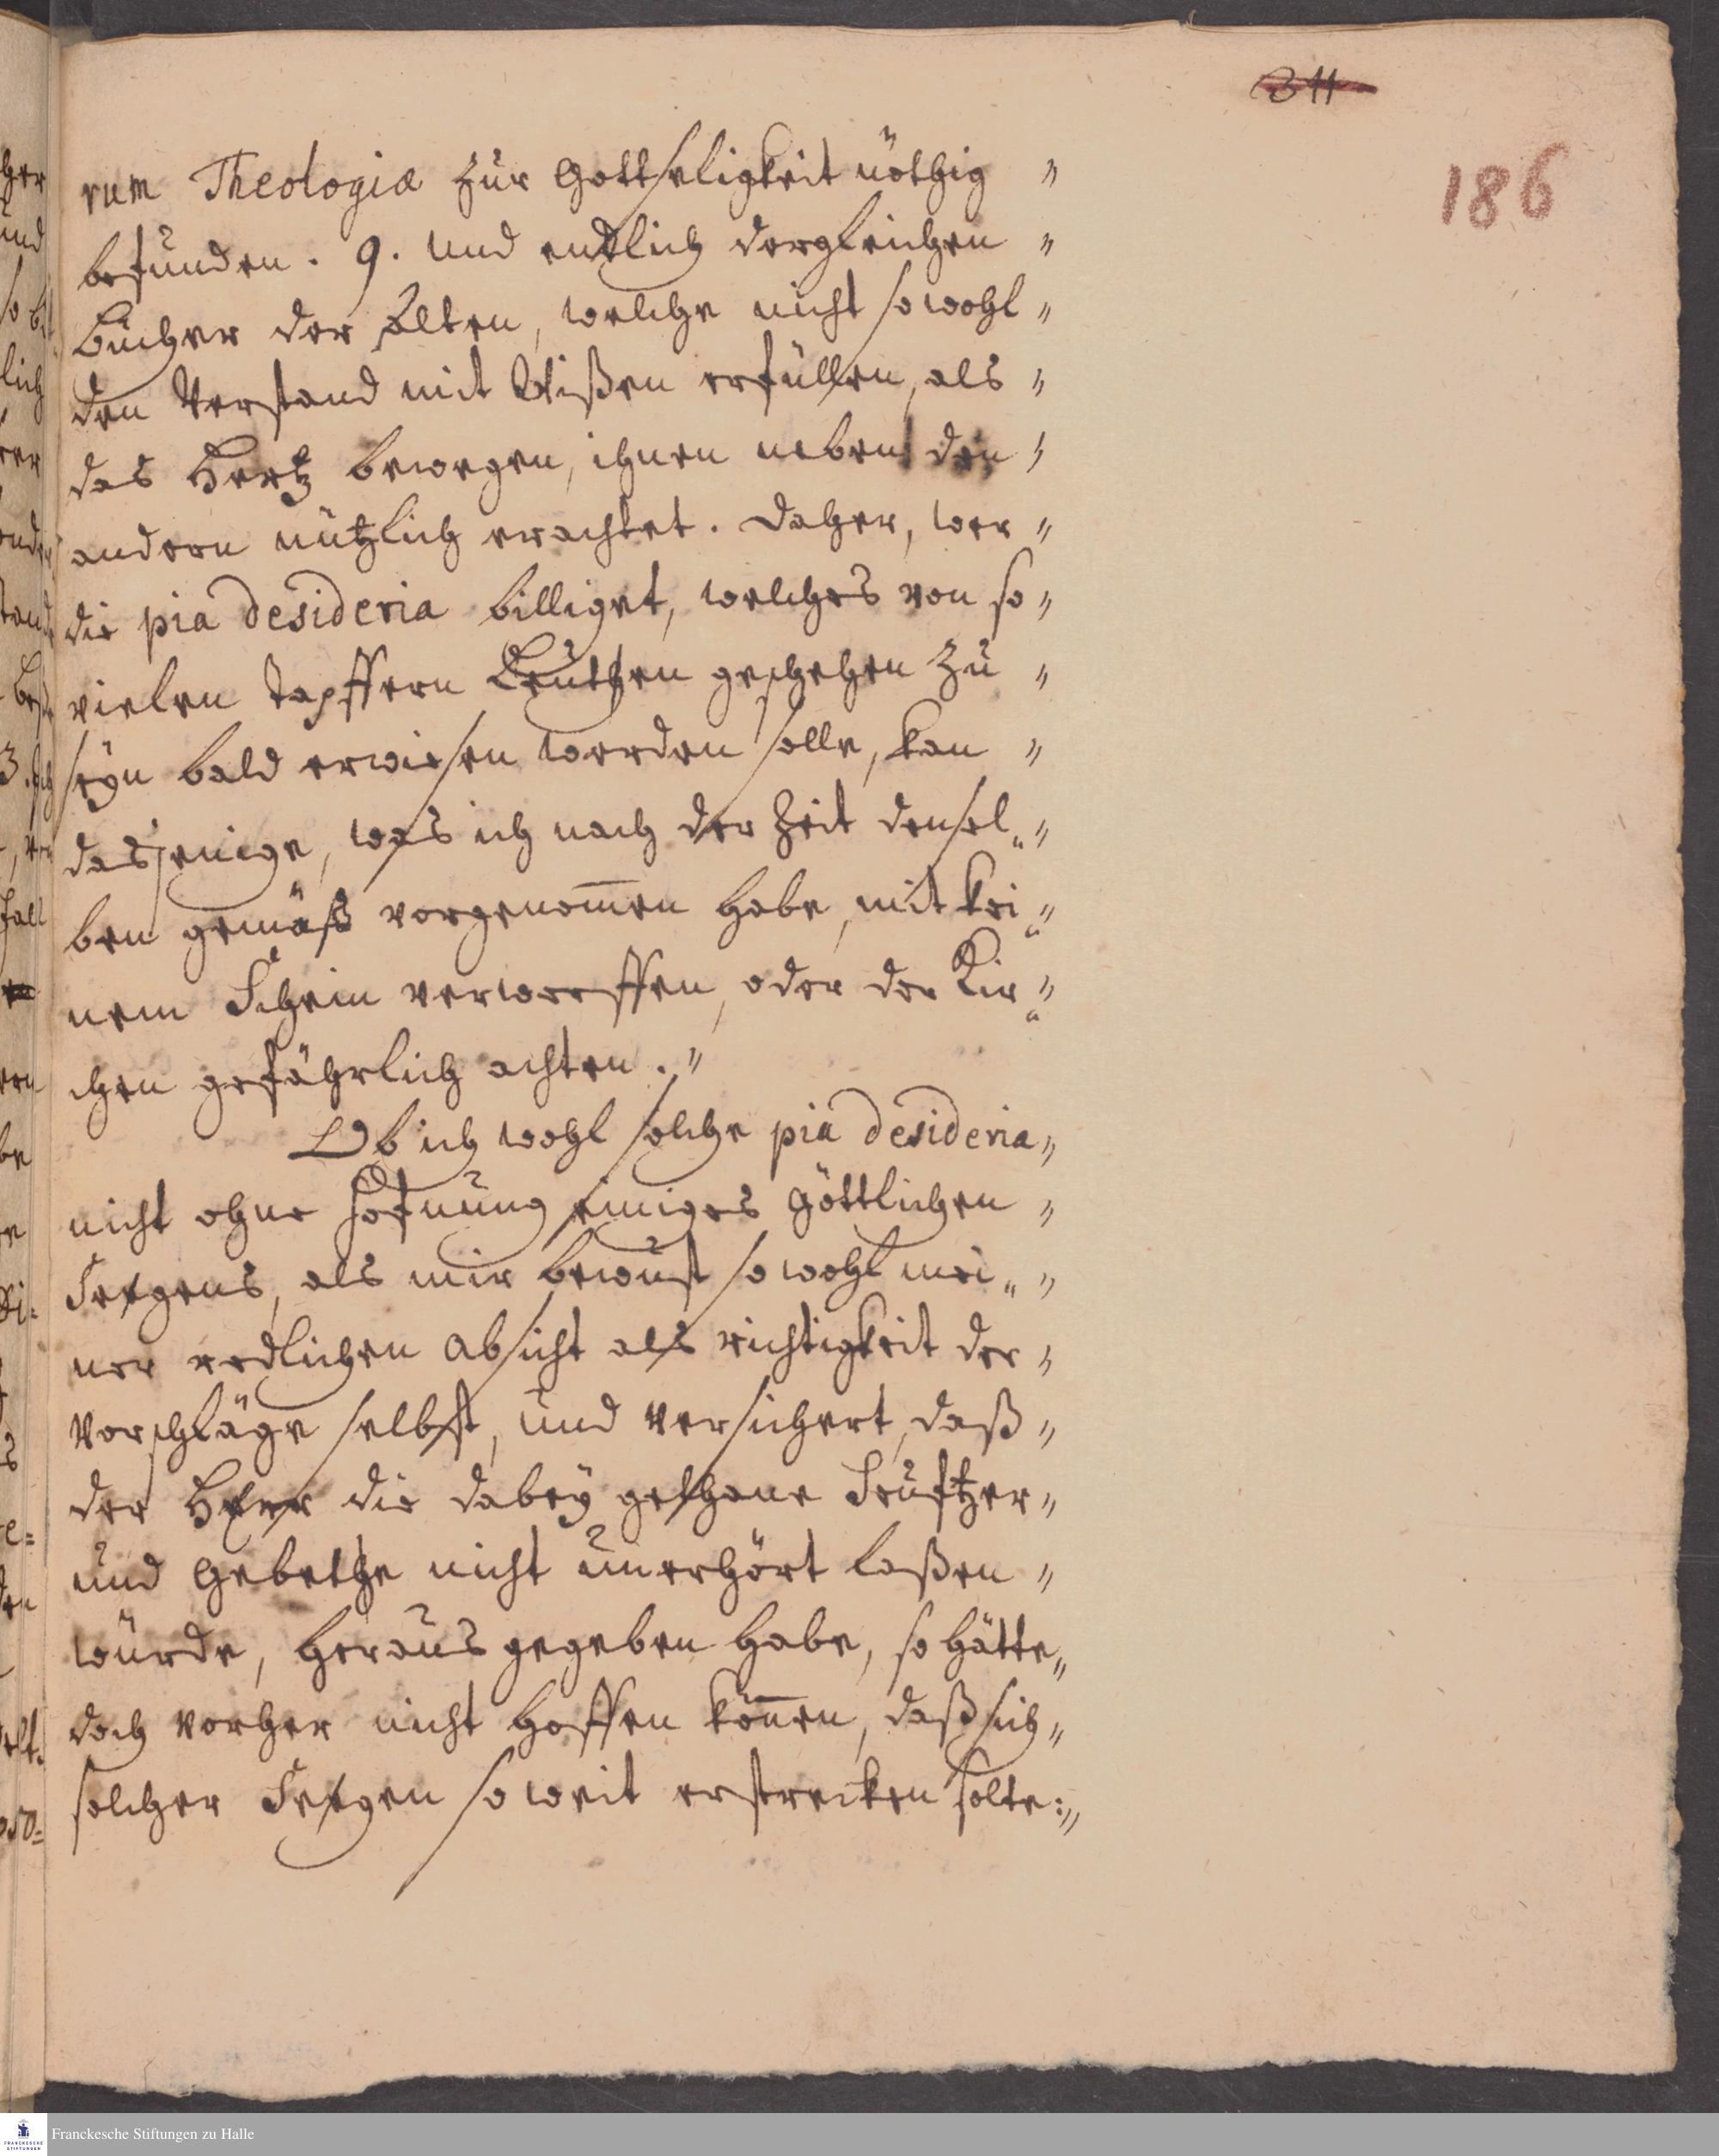 311
186
rum Theologiæ zur Gottseligkeit nöthig "
befunden. 9. und endlich dergleichen "
Bücher der Alten, welche nicht sowohl "
den Verstand mit Wißen erfüllen, als "
das Hertz bewegen, ihnen neben den "
andern nützlich erachtet. Daher, wer "
die pia desideria billiget, welches von so "
vielen tapffern Leuthen geschehen zu "
seyn bald erwiesen werden solle, kan "
dasjenige, was ich nach der Zeit densel„ "
ben gemäß vorgenom̄en habe, mit kei„ "
nem Schein verwerffen, oder der Kir„ "
chen gefährlich achten. "
Ob ich wohl solche pia desideria "
nicht ohne Hofnung einiges Göttlichen "
Seegens, als mir bewust sowohl mei„ "
ner redlichen Absicht als richtigkeit der "
Vorschläge selbst, und versichert, daß "
der HErr die dabey gethane Seuftzer "
und Gebethe nicht unerhört laßen "
würde, heraus gegeben habe, so hätte "
doch vorher nicht hoffen kön̄en, daß sich "
solcher Seegen so weit erstrecken solte: "
Franckesche Stiftungen zu Halle